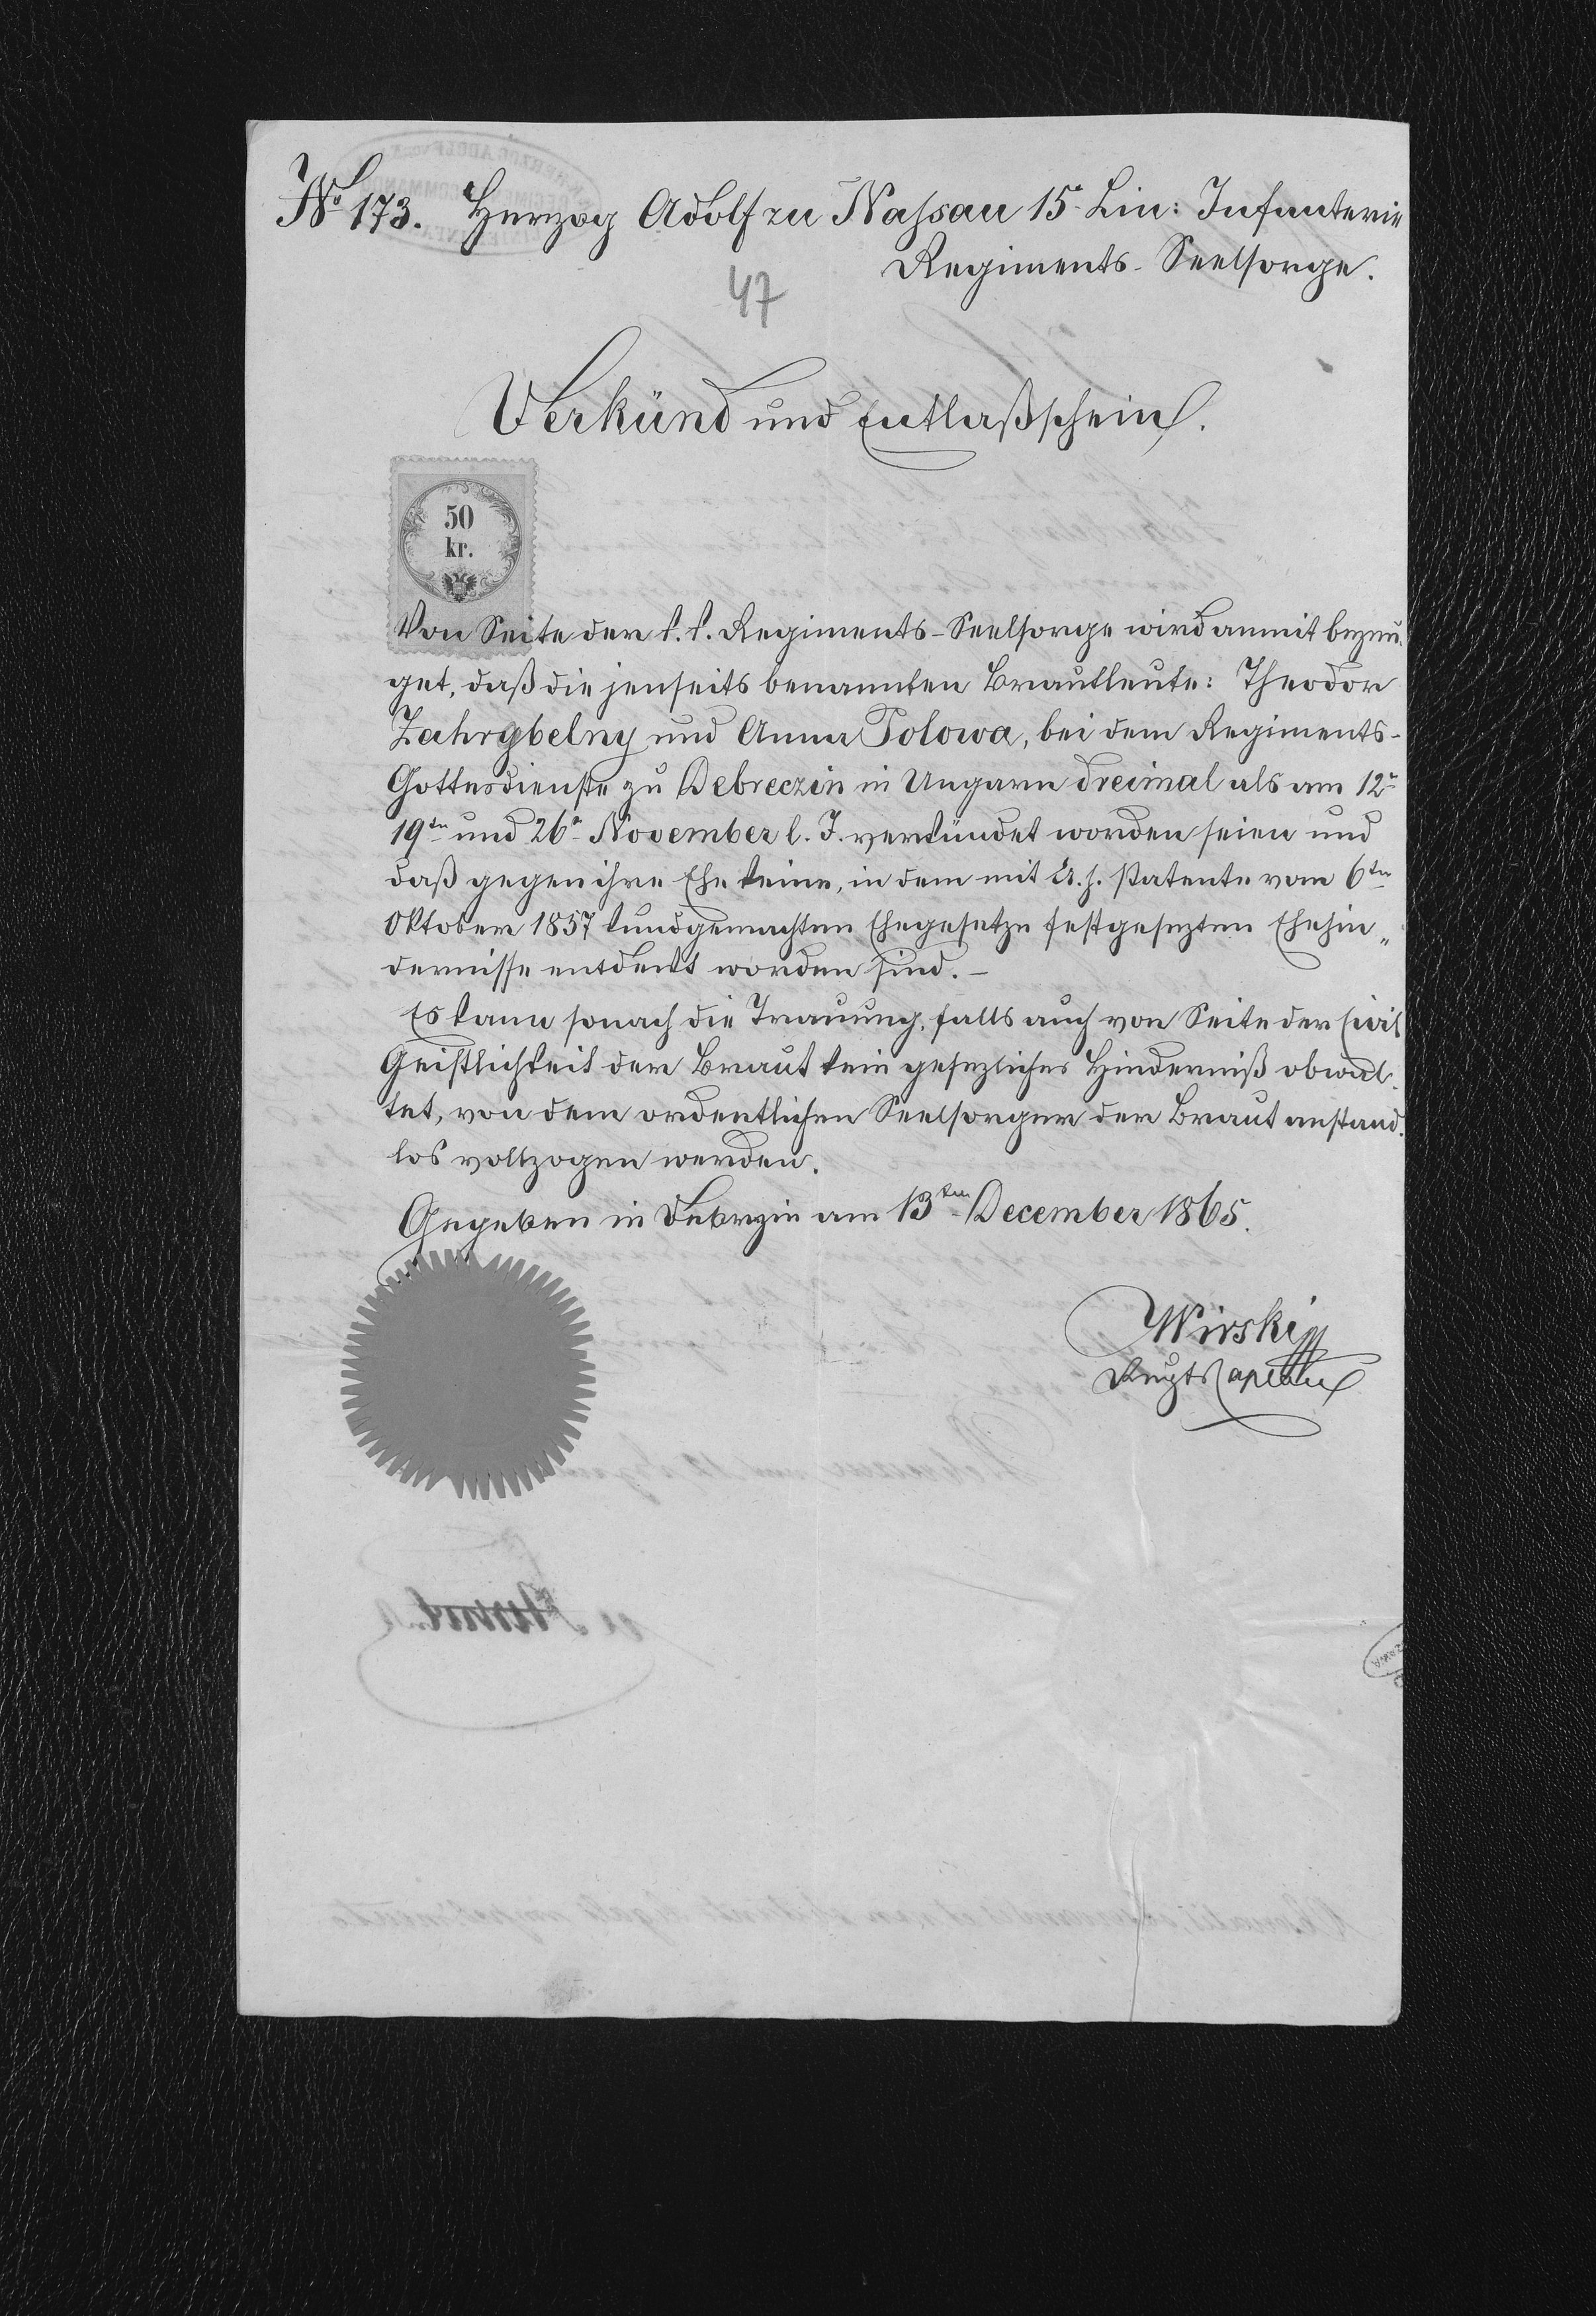 No 173. Herzog Adolf zu Nassau 15t Lin: Infanterie
Regiments-Seelsorge.
47
Verkünd und Entlaßschein.
50
kr.
Von Seite der k. k. Regiments-Seelsorge wird anmit bezeu-
get, daß die jenseits benannten Brautleute: Theodor
Zahrybelny und Anna Polowa, bei dem Regiments-
Gottesdienste zu Debreczin in Ungarn dreimal als am 12n
19ten und 26n November l. J. verkündet worden seien und
daß gegen ihre Ehe keine, in dem mit A. h. Patente vom 6ten
Oktober 1857 kundgemachten Ehegesetze festgesezten Ehehin„
dernisse entdekt worden sind. –
Es kann sonach die Trauung, falls auch von Seite der Civil
Geistlichkeit der Braut kein gesezliches Hinderniß obwal-
tet, von dem ordentlichen Seelsorger der Braut anstand-
los vollzogen werden.
Gegeben in Debrzin am 13ten December 1865.
Wirski
Rugts Caplan